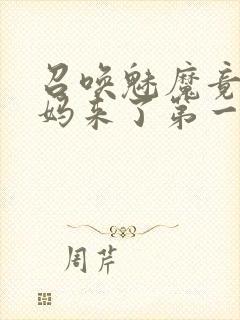 召唤魅魔竟
妈来了第一
周芹